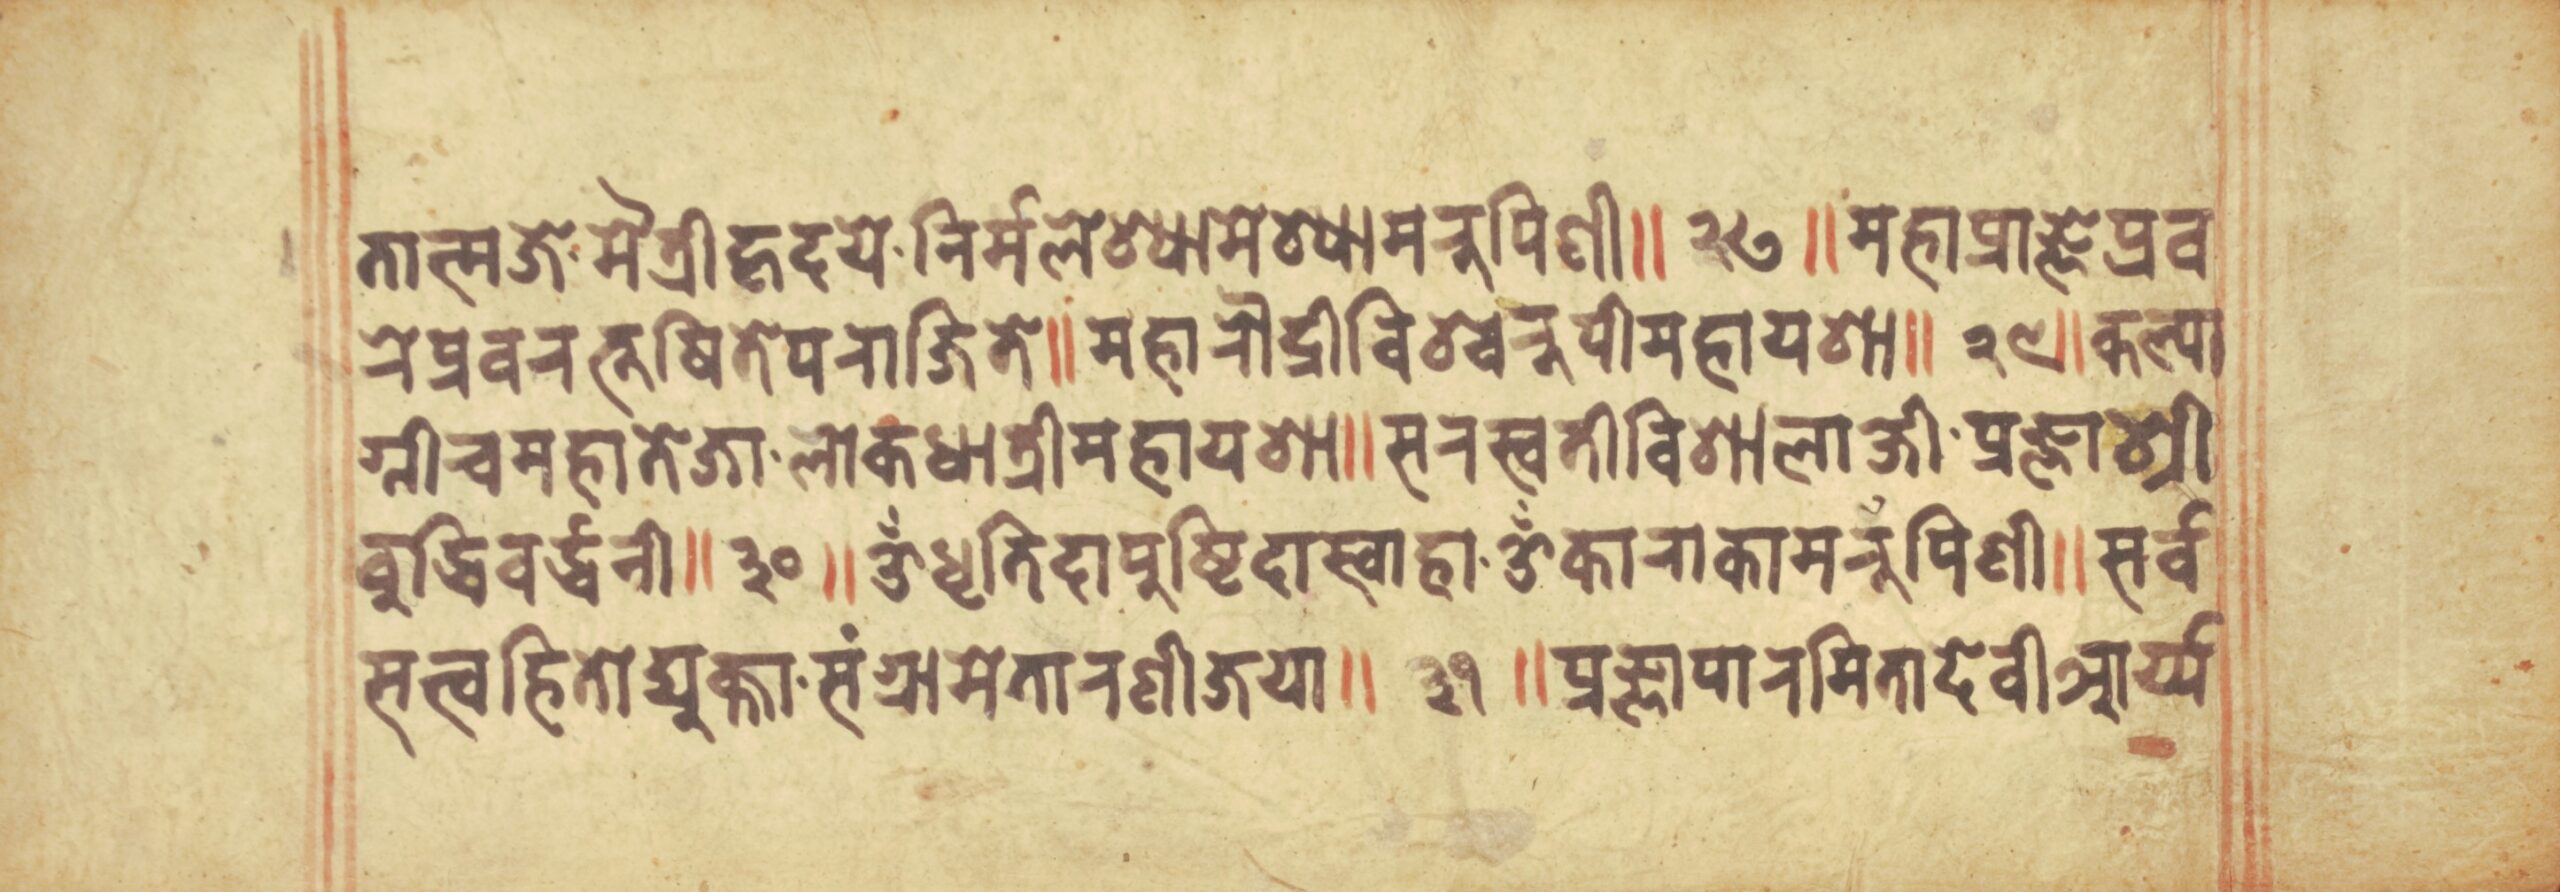 तात्मजे·मैत्रीहृदये·निर्मलेश्यामेश्यामरुपिणी॥ २८ ॥महाप्राज्ञेप्रव
रेप्रवरभूषितेपराजिते॥महारौद्रीविश्वरुपीमहायशा॥ २९॥कल्पा
ग्नीचमहातेजा·लोकधात्रीमहायशा॥सरस्वतीविशालाक्षी·प्रज्ञाश्री
वुद्धिवर्द्धनी॥ ३० ॥ॐधृतिदापुष्टिदास्वाहा·ॐकाराकामरुपिणी॥सर्व
सत्त्वहितोद्युक्ता·संग्रामेतारणीजया॥ ३१ ॥प्रज्ञापारमितादेवीआर्य्य